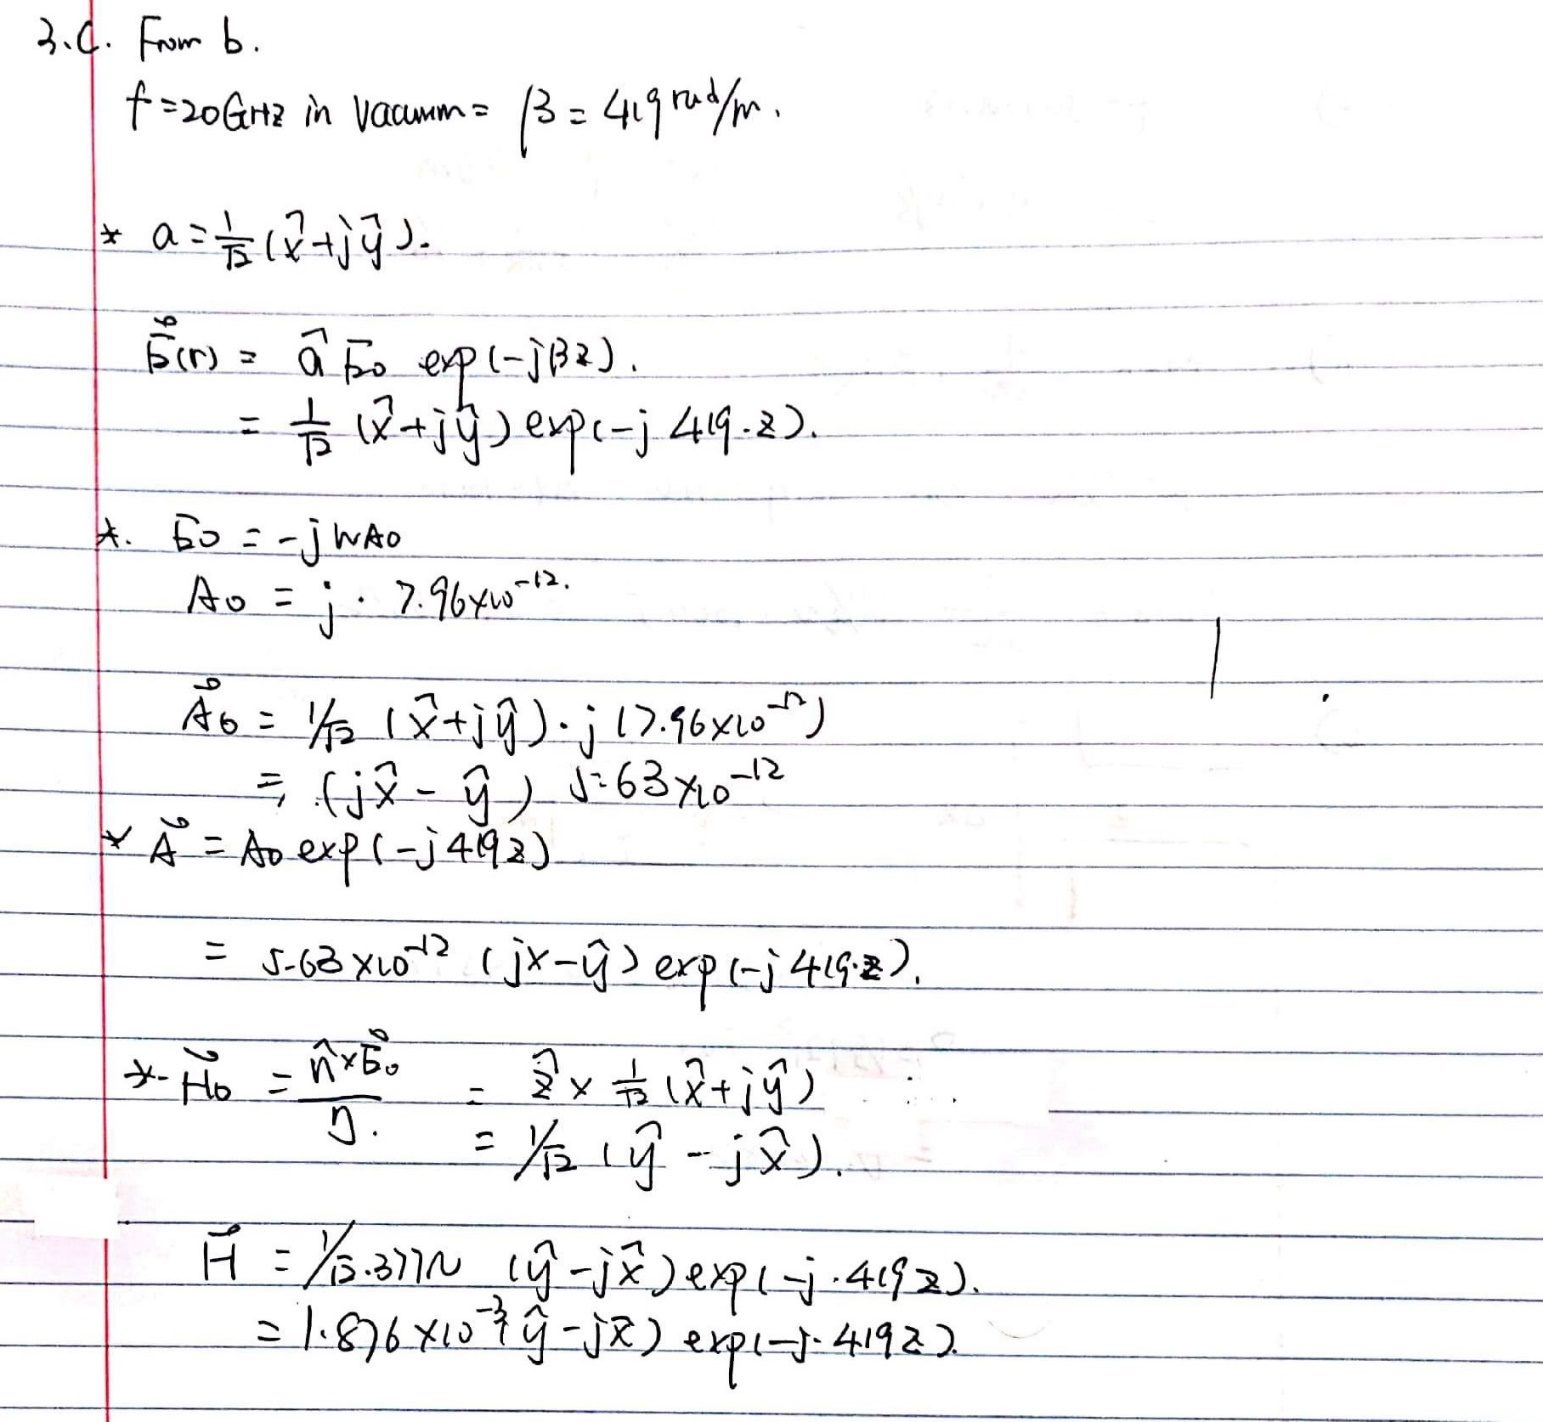 3.C. From b.
f=20GHz in Vacumm= β = 419 rad/m.
* a = 1/√2 (x̂+jŷ).
E⃗(r) = â E0 exp(-jβz).
= 1/√2 (x̂+jŷ) exp(-j 419.z).
*. E0 = -jwA0
A0 = j · 7.96×10⁻¹².
A⃗0 = 1/√2 (x̂+jŷ)·j (7.96×10⁻¹²)
= (jx̂ - ŷ) 5.63×10⁻¹²
* A⃗ = A0 exp(-j419z)
= 5.63×10⁻¹² (jx-ŷ) exp(-j 419.z).
*- H⃗0 = n̂×E⃗0/η. = ẑ × 1/√2 (x̂+jŷ)
= 1/√2 (ŷ - jx̂).
H⃗ = 1/√2.377Ω (ŷ-jx̂) exp(-j.419z).
= 1.876×10⁻³(ŷ-jx̂) exp(-j.419z).